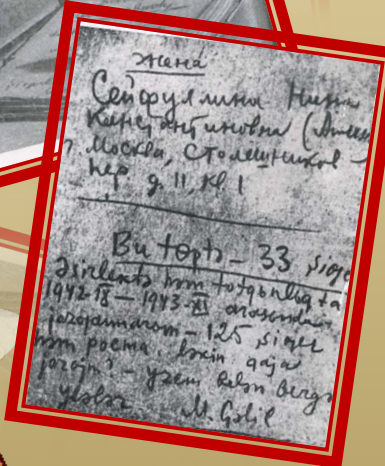 жена
Сейфулина Нина
Константиновна (Амин
г. Москва, Столешников
пер д. 11, кв 1
Bu təptə – 33 şiqe
Əsirlektə həm totqьnlьqta
1942-IX – 1943-XI arasьnda
– 125 şiqer
həm poema. Ləkin qaja
jazajm? – yzem belən bergə
yləlar M. Gəlil